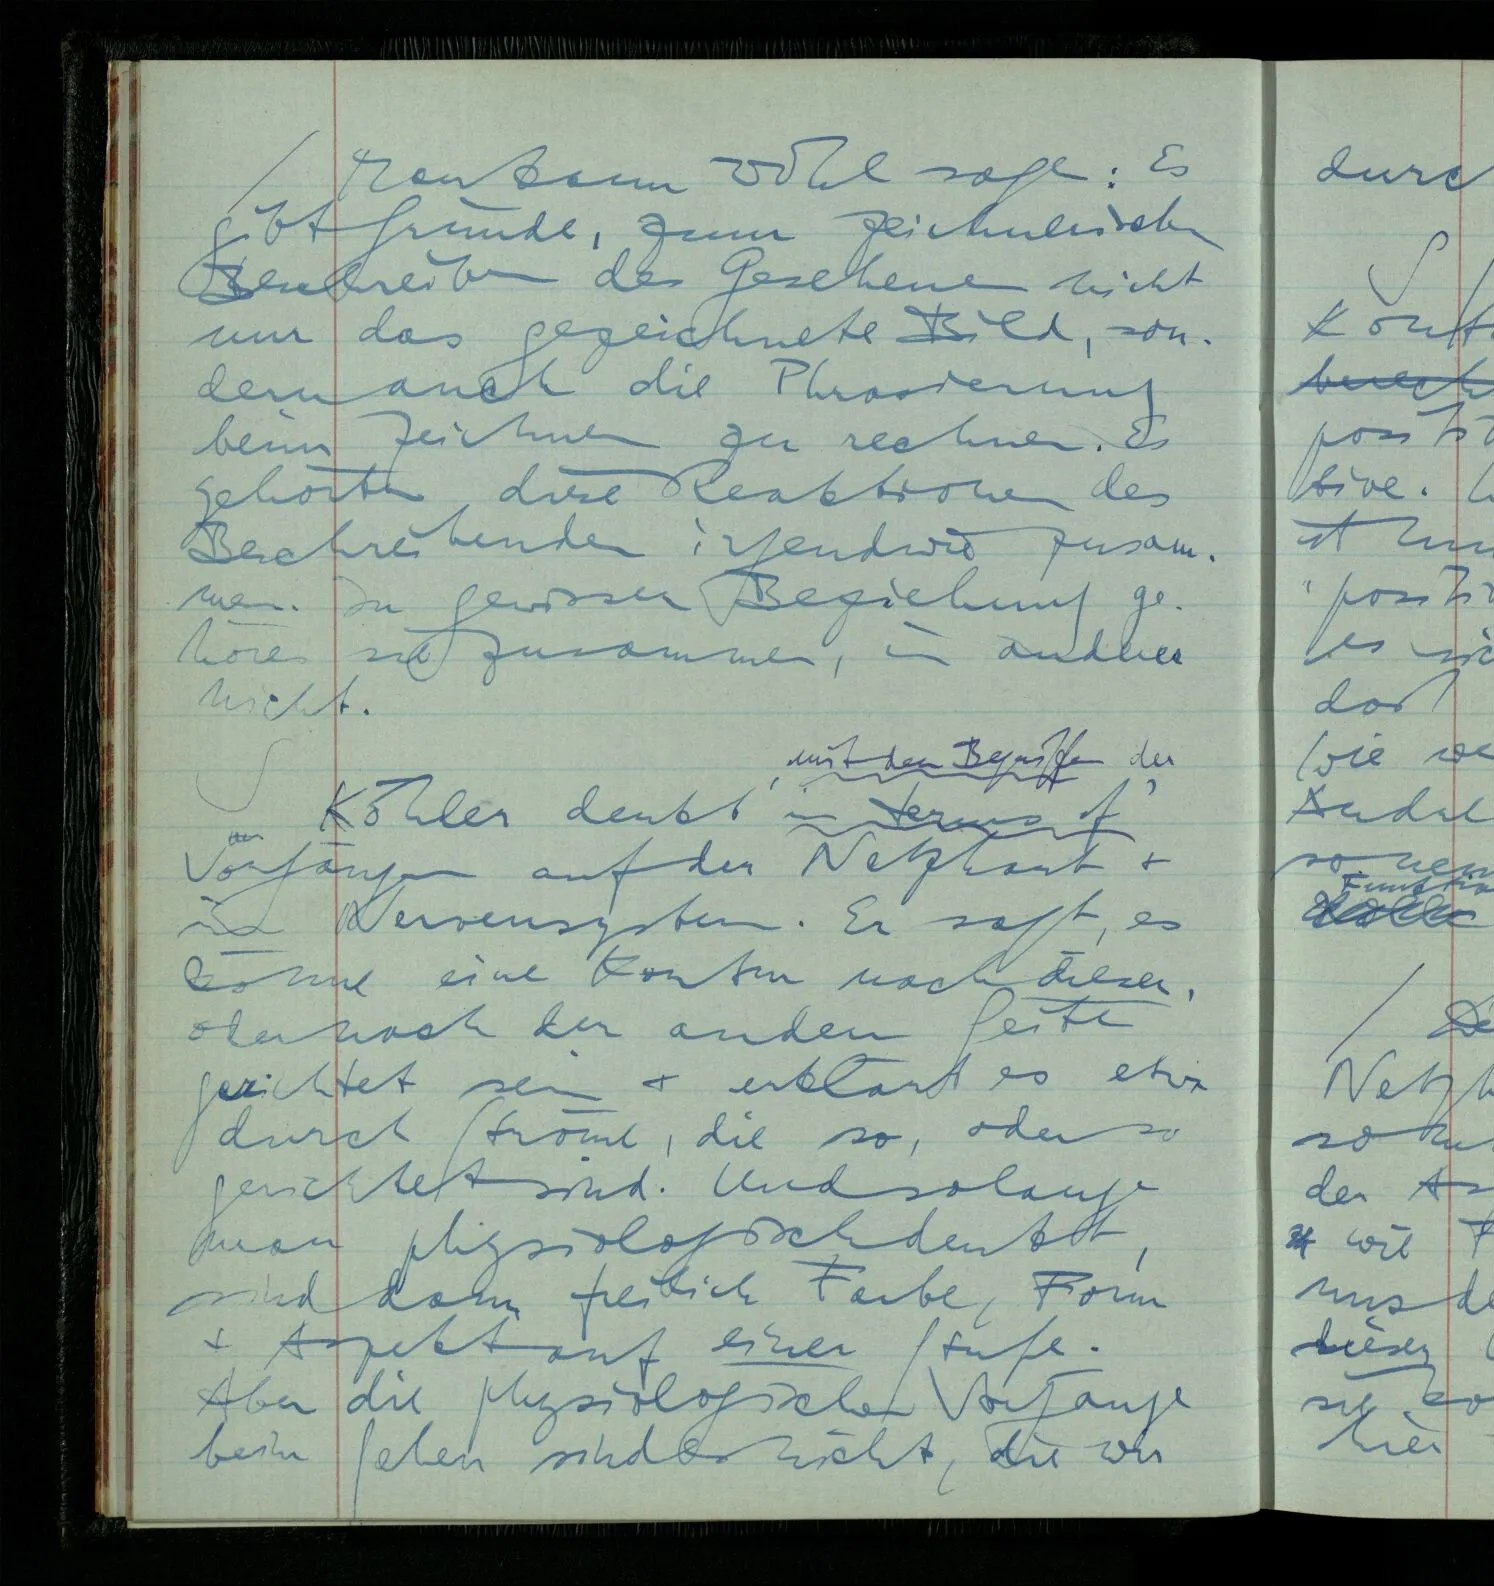 / Man kann wohl sagen: Es
gibt Gründe, zum zeichnerischen
Beschreiben des Gesehenen nicht
nur das gezeichnete Bild, son-
dern auch die Phrasierung
beim Zeichnen zu rechnen. Es
gehörten diese Reaktionen des
Beschreibenden irgendwie zusam-
men. In gewisser Beziehung ge-
hören sie zusammen, in andrer
nicht.
mit den Begriffen der
∫ Köhler denkt 'in terms of'
den
Vorgängen auf der Netzhaut +
im Nervensystem. Er sagt, es
könne eine Kontur nach dieser,
oder nach der anderen Seite
gerichtet sein + erklärt es etwa
durch Ströme, die so, oder so
gerichtet sind. Und solange
man physiologisch denkt,
sind dann freilich Farbe, Form
+ Aspekt auf einer Stufe.
Aber die physiologischen Vorgänge
beim Sehen sind es nicht, die wir
durc
∫
Kont
posit
tive.
ist
"posi
es
das
wie we
Andre
so
Funktio
/ De
Netzh
so
der As
wie
uns de
dieser
sie
hier